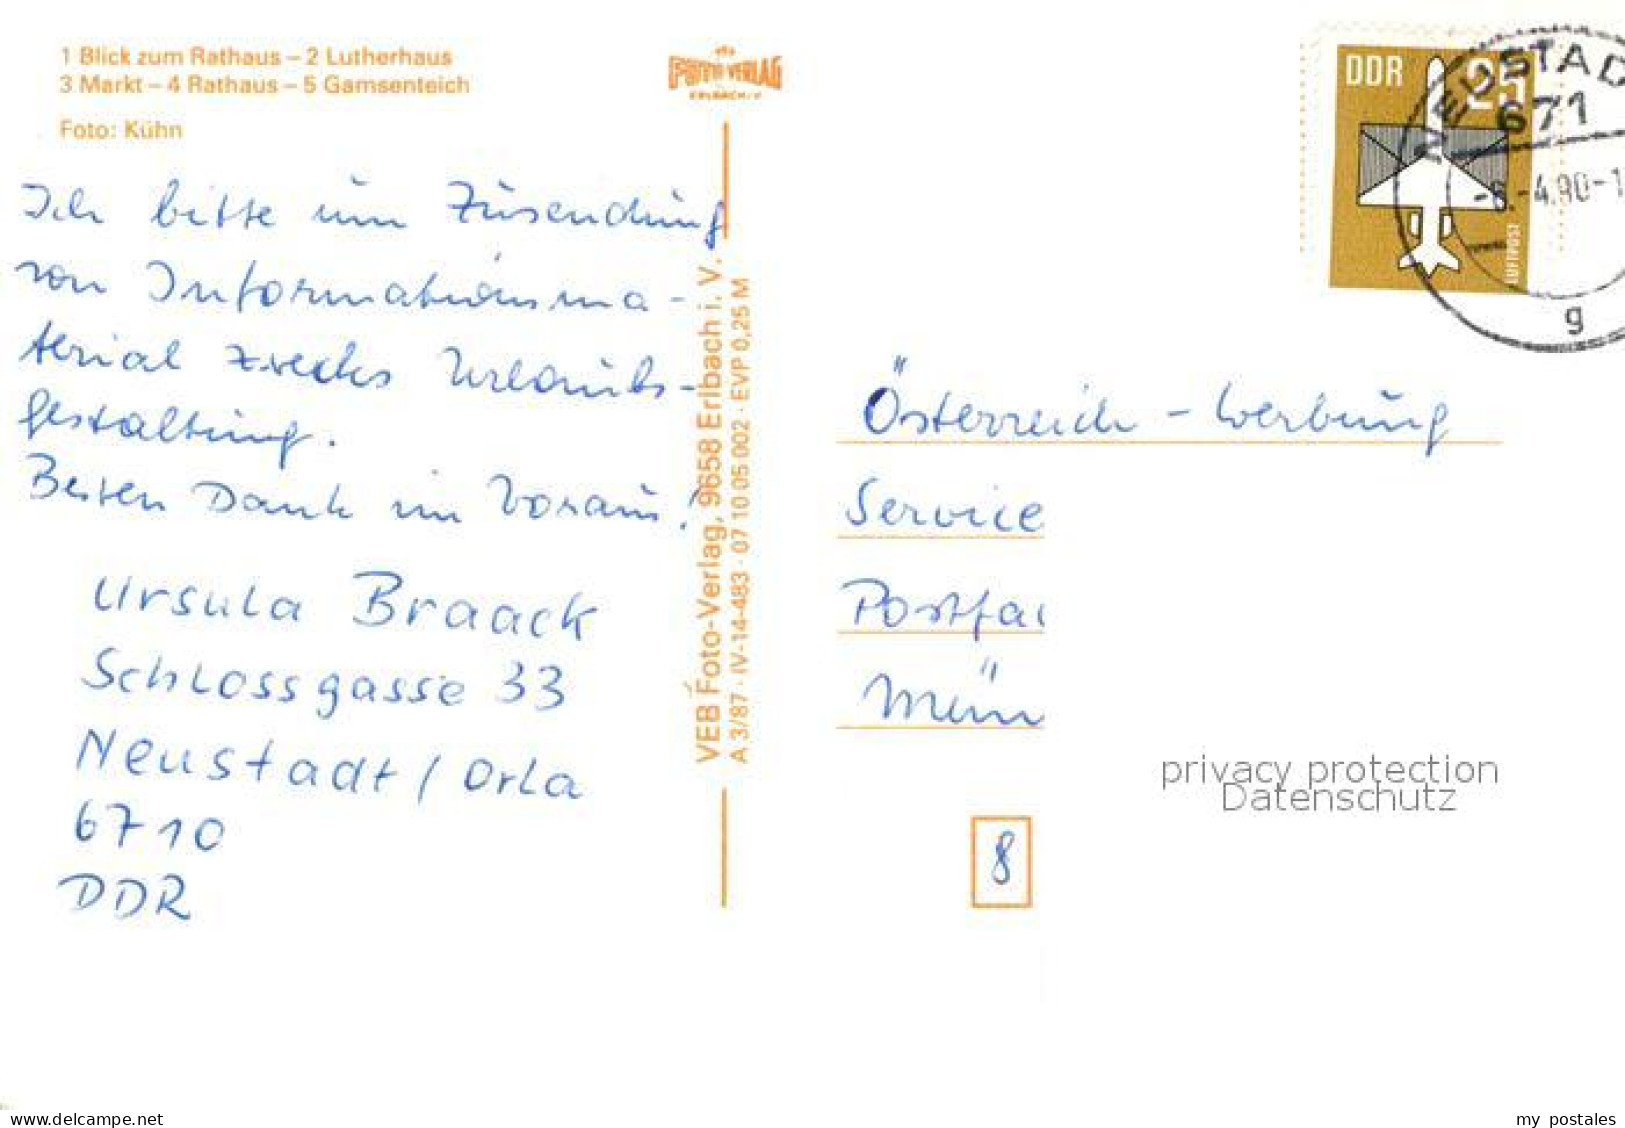 1 Blick zum Rathaus – 2 Lutherhaus
3 Markt – 4 Rathaus – 5 Gamsenteich
Foto: Kühn
FOTO-VERLAG
ERLBACH/V
Ich bitte um Zusendung
von Informationsma-
terial zwecks Urlaubs-
gestaltung.
Besten Dank im Voraus!
Ursula Braack
Schlossgasse 33
Neustadt / Orla
6710
DDR
VEB Foto-Verlag, 9658 Erlbach i. V.
A 3/87 · IV-14-483 · 07 10 05 002 · EVP 0,25 M
DDR 25
LUFTPOST
NEUSTAD
671
-6.-4.90-1
g
Österreich - Werbung
Service
Postfa
Mün
8
privacy protection
Datenschutz
www.delcampe.net
my_postales